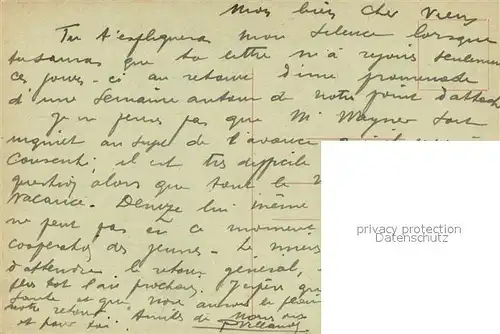 Mon bien cher Vieux
Tu t'expliqueras mon silence lorsque
tu sauras que ta lettre m'a rejoins seulement
ces jours-ci au retour d'une promenade
d'une semaine autour de notre point d'attache
Je ne pense pas que Mr Wagner soit
inquiet au sujet de l'avance
consenti; il est très difficile
question alors que tout le
vacance. lui même
ne peut pas en ce moment
coopératives des jeunes - Le mieux
d'attendre le retour général,
plus tot l'an prochain. J'espère que
santé et que nous aurons le plaisir
notre retour. Amitiés de nous
et pour toi.
privacy protection
Datenschutz